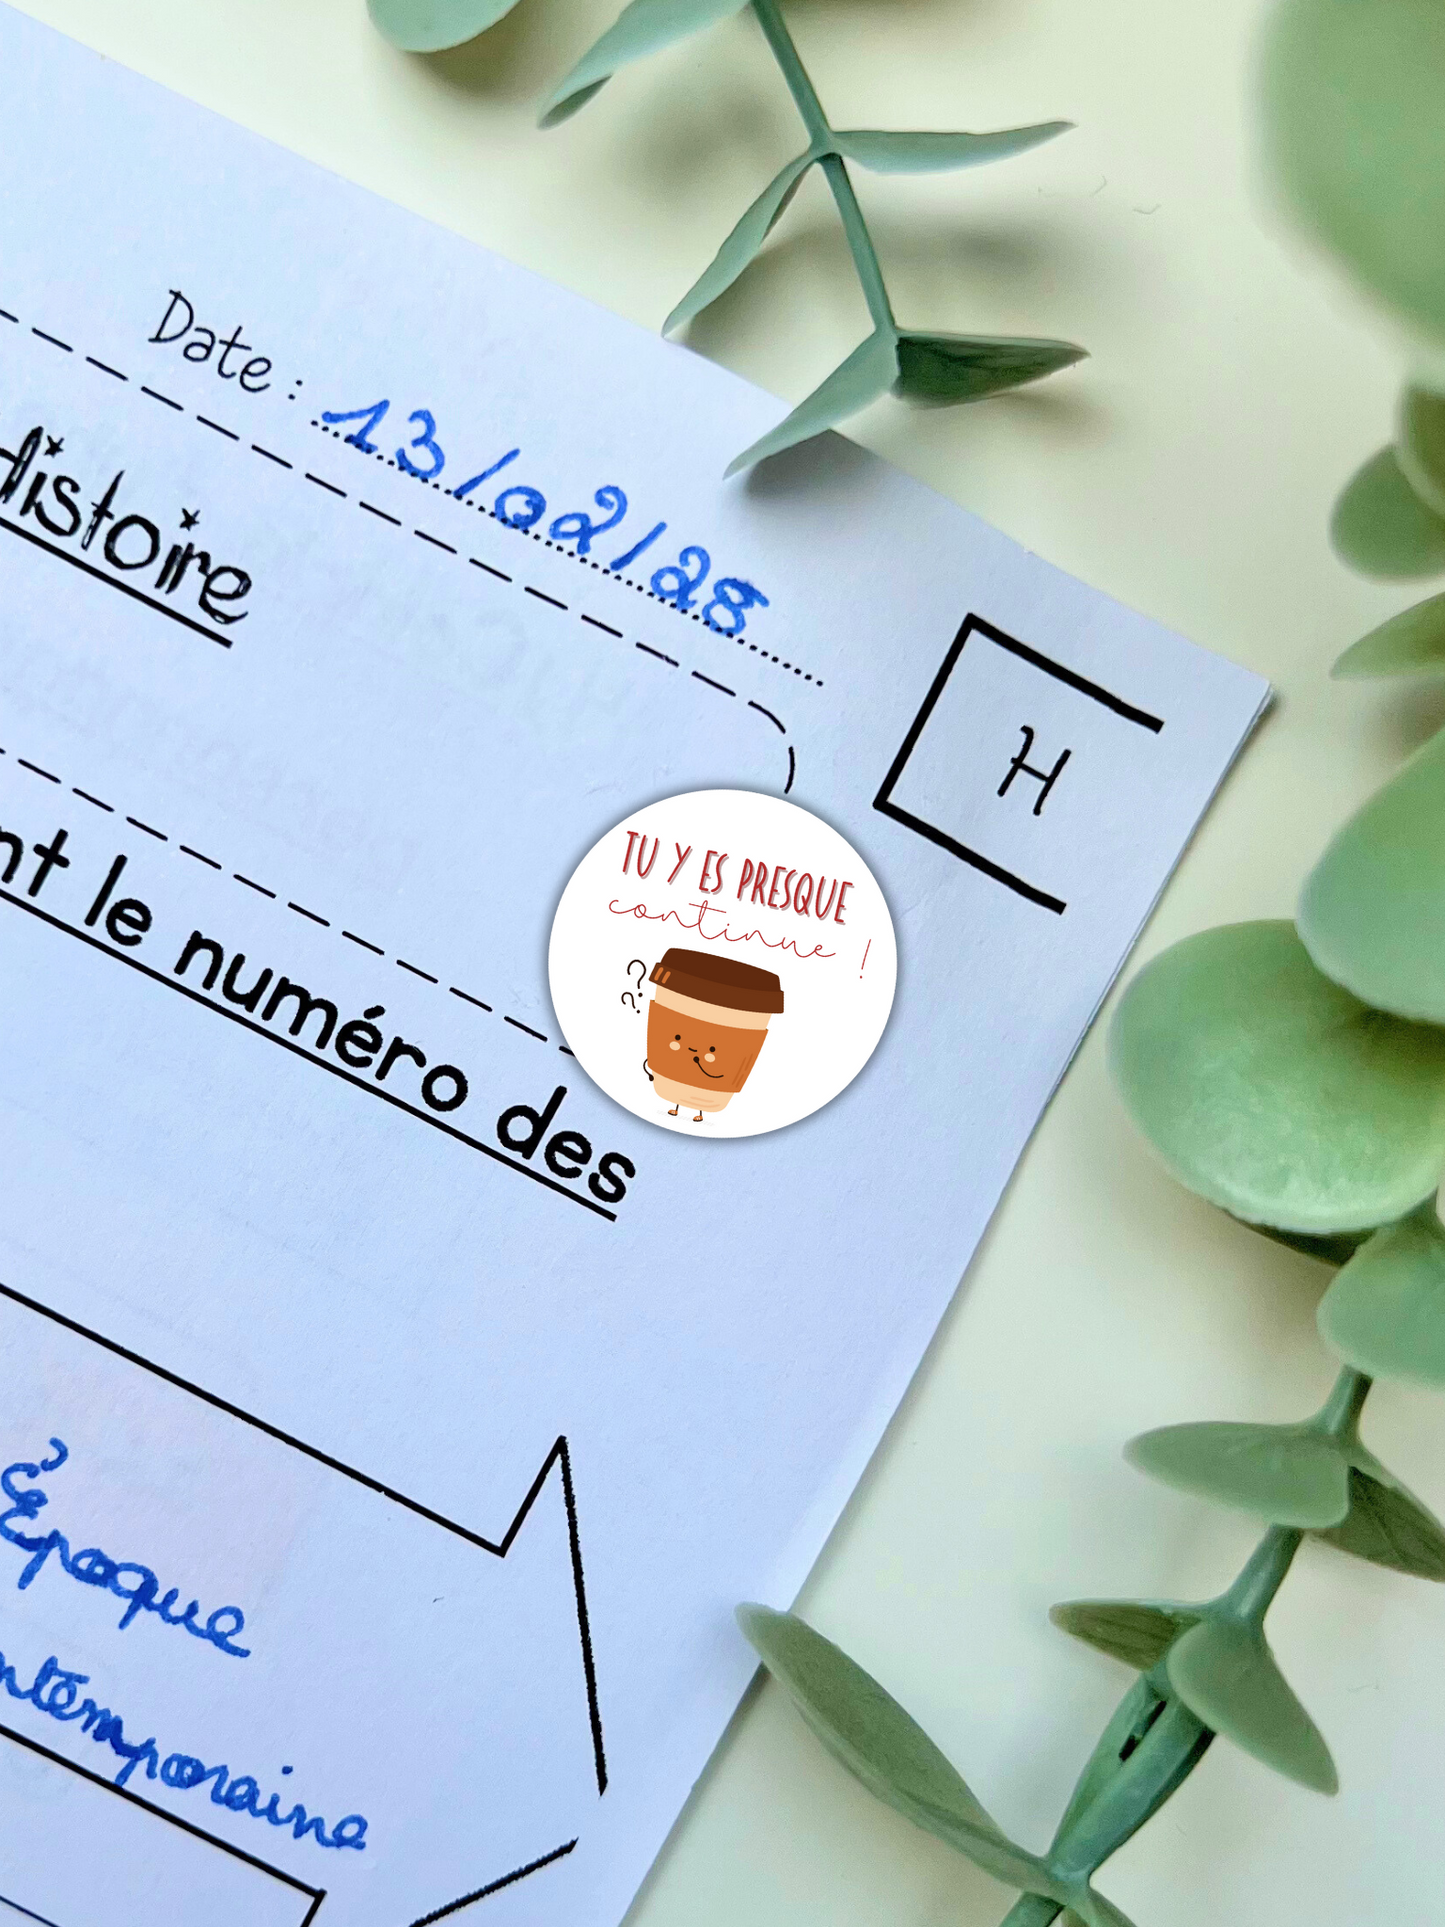 Date : 13/02/28
Histoire
H
nt le numéro des
TU Y ES PRESQUE
continue !
? ?
Époque
ntémporaine